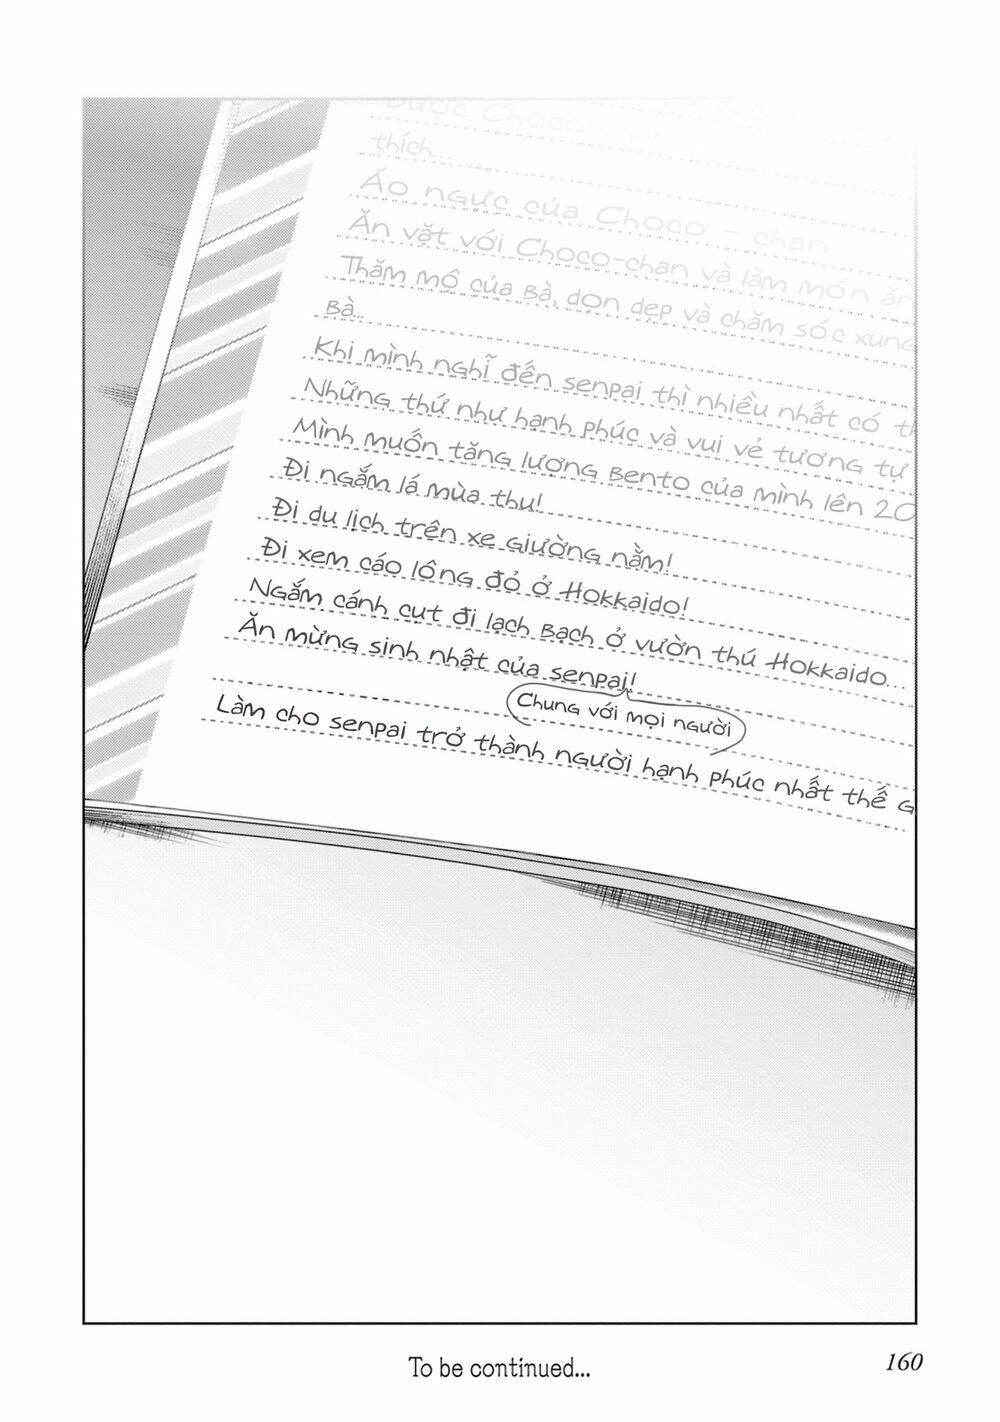 Được Choco-chan
thích...
Áo ngực của Choco - chan
Ăn vặt với Choco-chan và làm món ăn
Thăm mộ của Bà, dọn dẹp và chăm sóc xung
Bà...
Khi mình nghĩ đến senpai thì nhiều nhất có th
Những thứ như hạnh phúc và vui vẻ tương tự
Mình muốn tăng lượng Bento của mình lên 20
Đi ngắm lá mùa thu!
Đi du lịch trên xe giường nằm!
Đi xem cáo lông đỏ ở Hokkaido!
Ngắm cánh cụt đi lạch bạch ở vườn thú Hokkaido...
Ăn mừng sinh nhật của senpai!
Chung với mọi người
Làm cho senpai trở thành người hạnh phúc nhất thế g
To be continued...
160